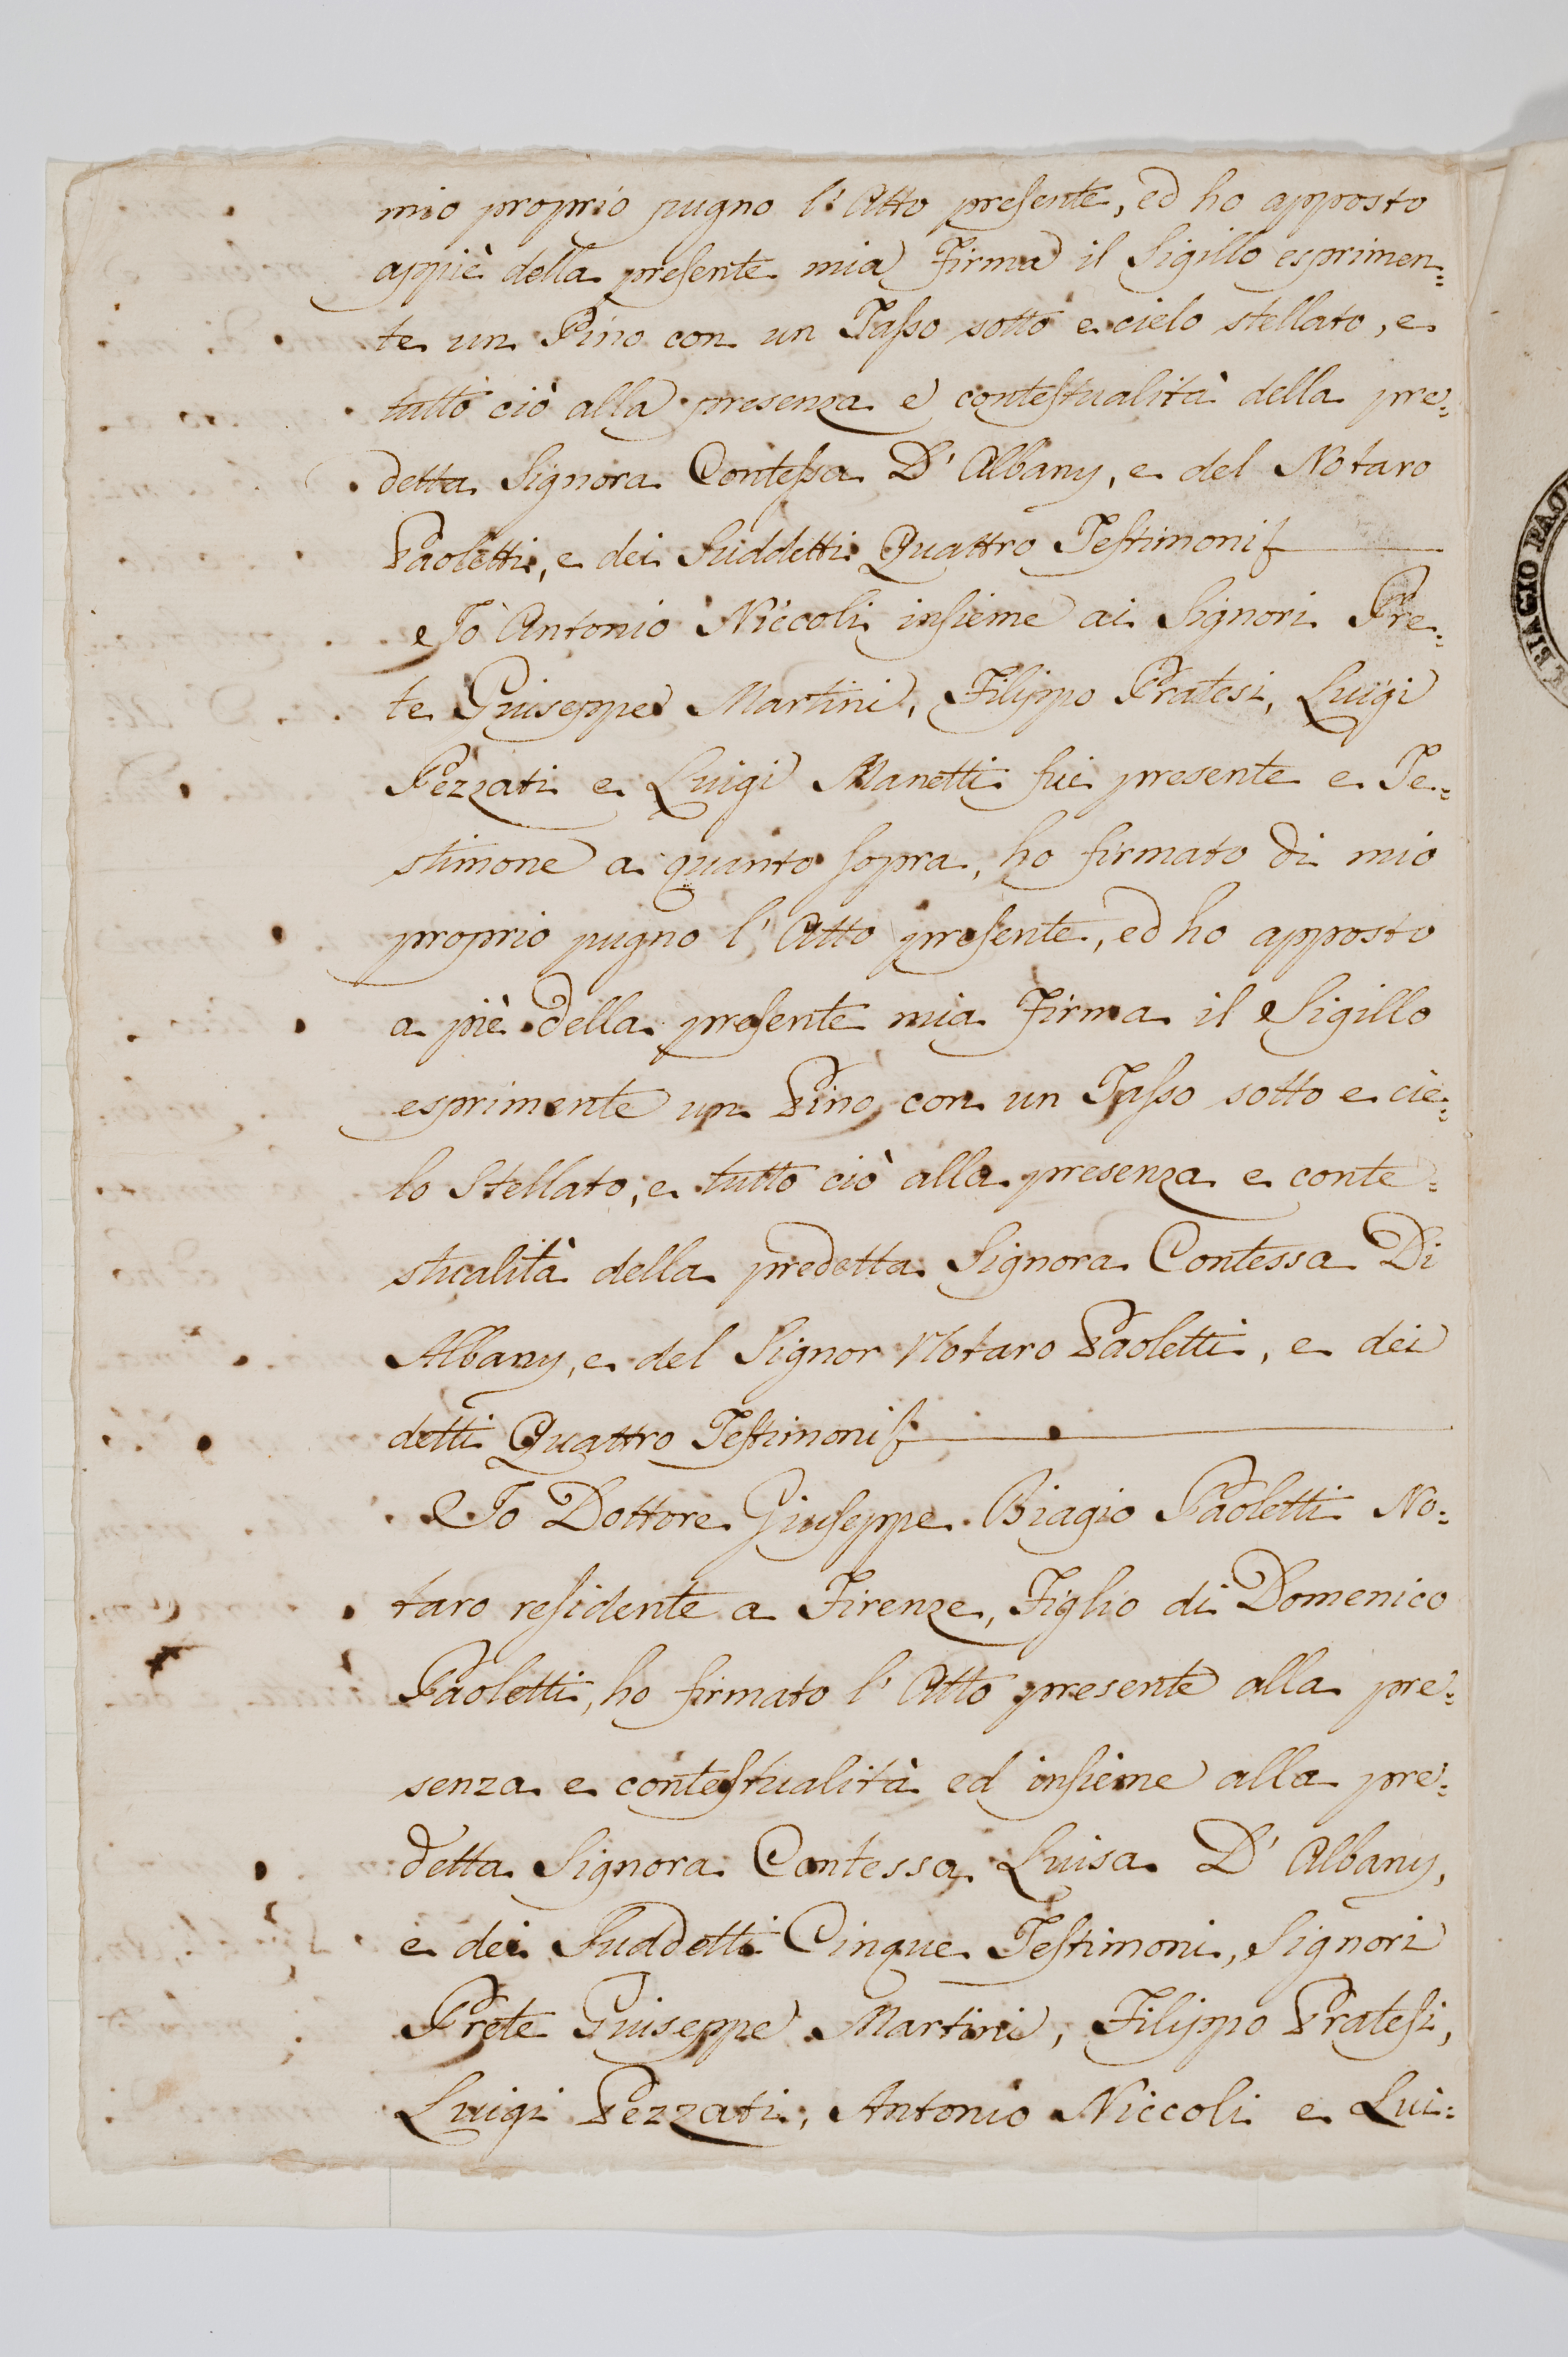 mio proprio pugno l'Atto presente, ed ho apposto
appiè della presente mia Firma il Sigillo esprimen=
te un Pino con un Tasso sotto e cielo stellato, e
tutto ciò alla presenza e contestualità della pre=
detta Signora Contessa D'Albany, e del Notaro
Paoletti, e dei Suddetti Quattro Testimonj
Io Antonio Niccoli insieme ai Signori Pre=
te Giuseppe Martini, Filippo Pratesi, Luigi
Pezzati e Luigi Manetti fui presente e Te=
stimone a quanto sopra, ho firmato di mio
proprio pugno l'Atto presente, ed ho apposto
a piè della presente mia Firma il Sigillo
esprimente un Pino con un Tasso sotto e cie=
lo Stellato, e tutto ciò alla presenza e conte=
stualità della predetta Signora Contessa Di
Albany, e del Signor Notaro Paoletti, e dei
detti Quattro Testimonj
Io Dottore Giuseppe Biagio Paoletti No=
taro residente a Firenze, Figlio di Domenico
Paoletti, ho firmato l'Atto presente alla pre=
senza e contestualità ed insieme alla pre=
detta Signora Contessa Luisa D'Albany,
e dei Suddetti Cinque Testimoni, Signori
Prete Giuseppe Martini, Filippo Pratesi,
Luigi Pezzati, Antonio Niccoli e Lui=
BIAGIO PAO